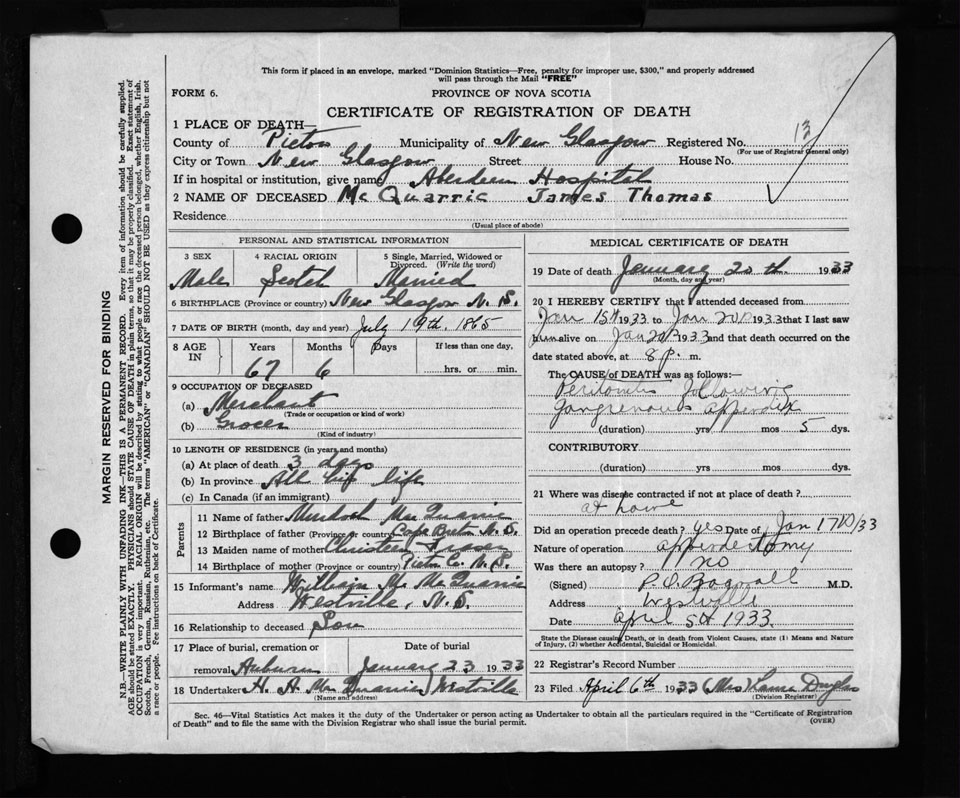 This form if placed in an envelope, marked "Dominion Statistics—Free, penalty for improper use, $300," and properly addressed
will pass through the Mail "FREE"
FORM 6.
PROVINCE OF NOVA SCOTIA
CERTIFICATE OF REGISTRATION OF DEATH
1 PLACE OF DEATH—
County of Pictou Municipality of New Glasgow Registered No. 13
(For use of Registrar General only)
City or Town New Glasgow Street House No.
If in hospital or institution, give name Aberdeen Hospital
2 NAME OF DECEASED McQuarrie James Thomas
Residence
(Usual place of abode)
PERSONAL AND STATISTICAL INFORMATION
3 SEX 4 RACIAL ORIGIN 5 Single, Married, Widowed or
Divorced. (Write the word)
Male Scotch Married
6 BIRTHPLACE (Province or country) New Glasgow N. S.
7 DATE OF BIRTH (month, day and year) July 19th. 1865
8 AGE IN Years Months Days If less than one day,
67 6 hrs. or min.
9 OCCUPATION OF DECEASED
(a) Merchant
(Trade or occupation or kind of work)
(b) Grocer
(Kind of industry)
10 LENGTH OF RESIDENCE (in years and months)
(a) At place of death 3 days
(b) In province All his life
(c) In Canada (if an immigrant)
Parents
11 Name of father Murdoch MacQuarrie
12 Birthplace of father (Province or country) Cape Breton N. S.
13 Maiden name of mother Fraser
14 Birthplace of mother (Province or country) Pictou Co. N. S.
15 Informant's name William Mc McQuarrie
Address Westville, N. S.
16 Relationship to deceased Son
17 Place of burial, cremation or Date of burial
removal Auburn January 23 1933
18 Undertaker H. A. MacQuarrie, Westville
(Name and address)
MEDICAL CERTIFICATE OF DEATH
19 Date of death January 20th. 1933
(Month, day and year)
20 I HEREBY CERTIFY that I attended deceased from
Jan 15th 1933 to Jan 20th 1933 that I last saw
him alive on Jan 20th 1933 and that death occurred on the
date stated above, at 8 p. m.
The CAUSE of DEATH was as follows:
Peritonitis following
gangrenous appendix
(duration) yrs mos 5 dys.
CONTRIBUTORY
(duration) yrs mos dys.
21 Where was disease contracted if not at place of death?
at home
Did an operation precede death? yes Date of Jan 17th/33
Nature of operation appendectomy
Was there an autopsy? no
(Signed) P. O. Bagnall M.D.
Address Westville
Date April 5th 1933.
State the Disease causing Death, or in death from Violent Causes, state (1) Means and Nature
of Injury, (2) whether Accidental, Suicidal or Homicidal.
22 Registrar's Record Number
23 Filed April 6th 1933 (Mrs) Laura Douglas
(Division Registrar)
Sec. 46—Vital Statistics Act makes it the duty of the Undertaker or person acting as Undertaker to obtain all the particulars required in the "Certificate of Registration
of Death" and to file the same with the Division Registrar who shall issue the burial permit.
(OVER)
MARGIN RESERVED FOR BINDING
N.B.—WRITE PLAINLY WITH UNFADING INK—THIS IS A PERMANENT RECORD. Every item of information should be carefully supplied.
AGE should be stated EXACTLY. PHYSICIANS should STATE CAUSE OF DEATH in plain terms, so that it may be properly classified. Exact statement of
OCCUPATION is very important. RACIAL ORIGIN will be described by stating to what people or race the deceased person belonged, whether English, Irish,
Scotch, French, German, Russian, Ruthenian, etc. The terms "AMERICAN" or "CANADIAN" SHOULD NOT BE USED as they express citizenship but not
a race or people. Fee instructions on back of Certificate.